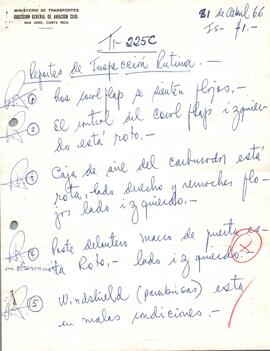 MINISTERIO DE TRANSPORTES
DIRECCION GENERAL DE AVIACION CIVIL
SAN JOSE, COSTA RICA
21 de Abril 66
TI-225C
Reportes de Inspección Rutina.
1 Los cowl flap se sienten flojos,
2 El control del cowl flap izquier
do está roto.
3 Caja de aire del carburador está
rota, lado derecho y remoches flo-
jos lado izquierdo.
4 Parte delantera marco de puerta es-
en observación ta Rota, lado izquierdo.
5 Windshield (parabrisas) esta
en malas condiciones.-